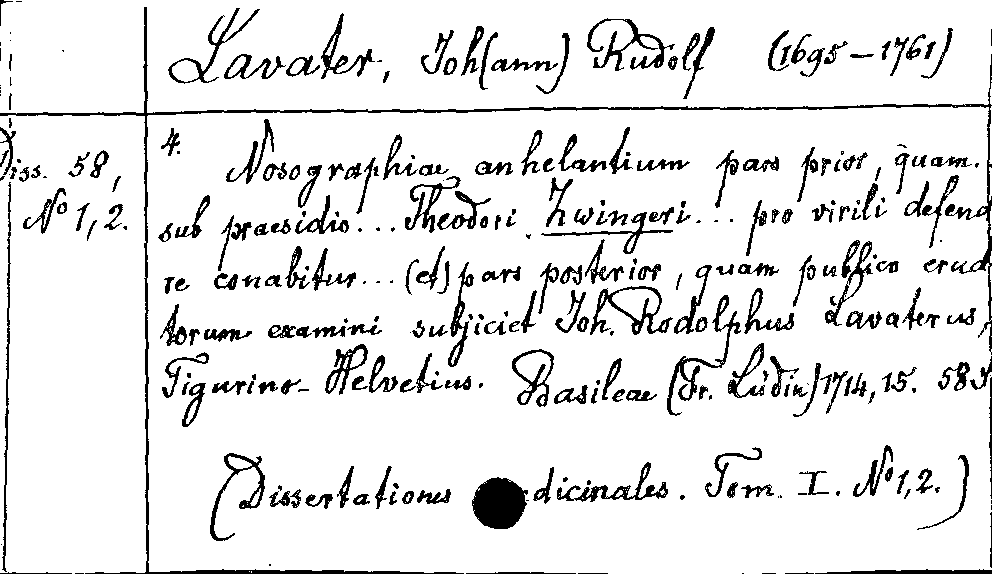 Lavater, Joh(ann) Rudolf (1695-1761)
Diss. 58,
No 1, 2.
4.
Nosographiae anhelantium pars prior, quam..
sub praesidio... Theodori Zwingeri... pro virili defend
re conabitur... (et) pars posterior, quam publico erud
torum examini subjiciet Joh. Rodolphus Lavaterus,
Tigurino-Helvetius. Basileae (Fr. Lüdin) 1714, 15. 58 S
(Dissertationes dicinales. Tom. I. No 1, 2.)